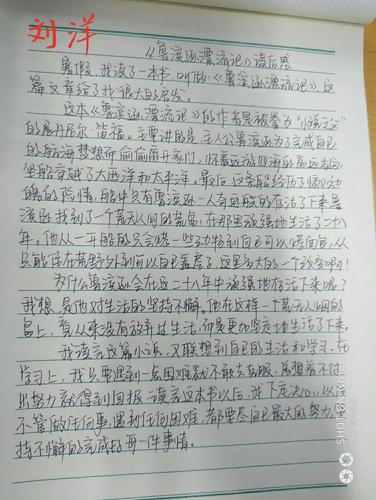 刘洋
《鲁滨逊漂流记》读后感
暑假,我读了一本书,叫做《鲁滨逊漂流记》这
篇文章给了我很大的启发。
这本《鲁滨逊漂流记》的作者是被拳为"小说之父"
的展丹尼尔·笛福。主要讲的是,主人公鲁滨逊为了完成自己
的航海梦想而偷偷离开家门,怀着远游四海的高远志向,
坐船穿越了大西洋和太平洋。最后,这条船经历了惊心动
魄的险情,船中只有鲁滨逊一人奇迹般的存活了下来鲁
滨逊找到了一个荒无人间的荒岛,在那里顽强地生活了二十八
年。他从一开始的只会烤一些动物到自己可以烤面包,从
只能住在荒野外到可以自己盖房子,这是多大的一个改变啊!
为什么鲁滨逊会在这二十八年中顽强地存活下来呢?
我想,是他对生活的坚持不懈。他在这样一个荒无人烟的
岛上,看从来没有放弃过生活,而是更加坚定地生活了下来。
我读完这篇小说,又联想到自己的生活和学习。在
学习上,我只要遇到一点困难就不敢去克服,总想着不付
出努力就得到回报。读完这本书以后,我下定决心,以后
不管做任何事,遇到任何困难,都要尽自己最大的努力,坚
持不懈的完成好每一件事情。
SHOT ON